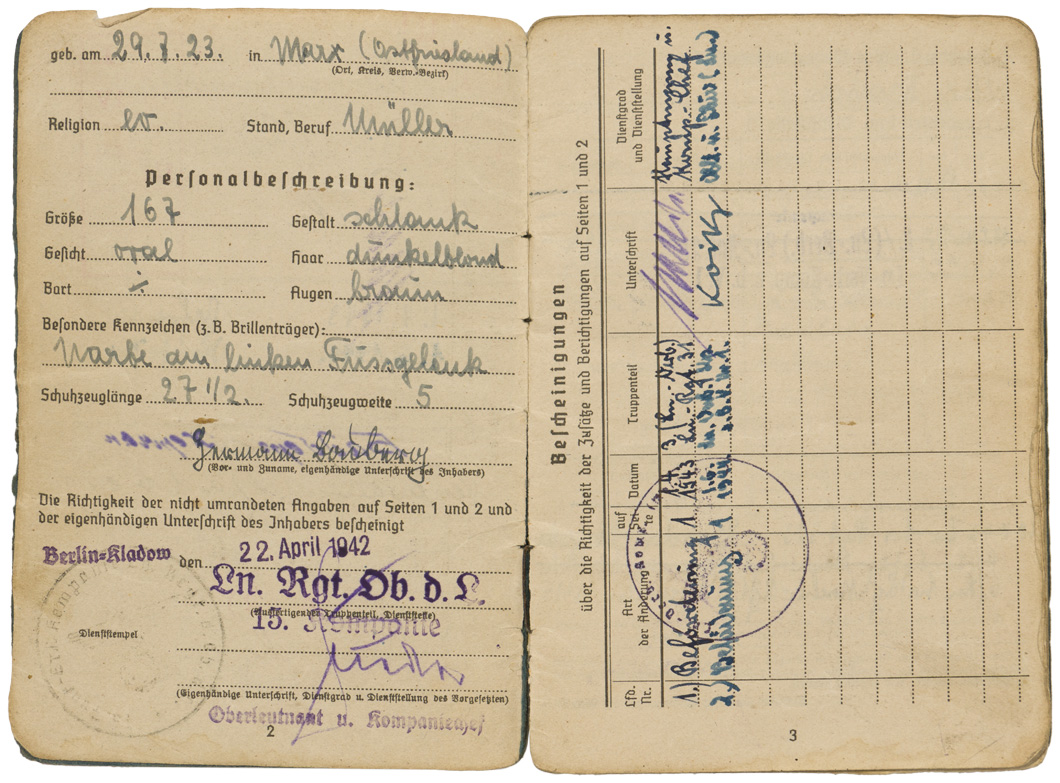 geb. am 29.7.23. in Marx (Ostfriesland)
(Ort, Kreis, Verw.-Bezirk)
Religion ev. Stand, Beruf Müller
Personalbeſchreibung:
Größe 167 Geſtalt schlank
Geſicht oval Haar dunkelblond
Bart ./. Augen braun
Beſondere Kennzeichen (z. B. Brillenträger):
Narbe am linken Fussgelenk
Schuhzeuglänge 27 1/2. Schuhzeugweite 5
Hermann
(Vor- und Zuname, eigenhändige Unterſchrift des Inhabers)
Die Richtigkeit der nicht umrandeten Angaben auf Seiten 1 und 2 und
der eigenhändigen Unterſchrift des Inhabers beſcheinigt
Berlin-Kladow den 22. April 1942
Ln. Rgt. Ob. d. L.
(Ausfertigender Truppenteil, Dienſtſtelle)
15. Kompanie
Dienſtſtempel
(Eigenhändige Unterſchrift, Dienſtgrad u. Dienſtſtellung des Vorgeſetzten)
Oberleutnant u. Kompaniechef
2
Beſcheinigungen
über die Richtigkeit der Zuſätze und Berichtigungen auf Seiten 1 und 2
Lfd. Nr. Art der Änderung auf Seite Datum Truppenteil Unterſchrift Dienſtgrad und Dienſtſtellung
1.) Beförderung 1 1943 Hauptmann u. Komp.-Chef
2.) 1 1944
3